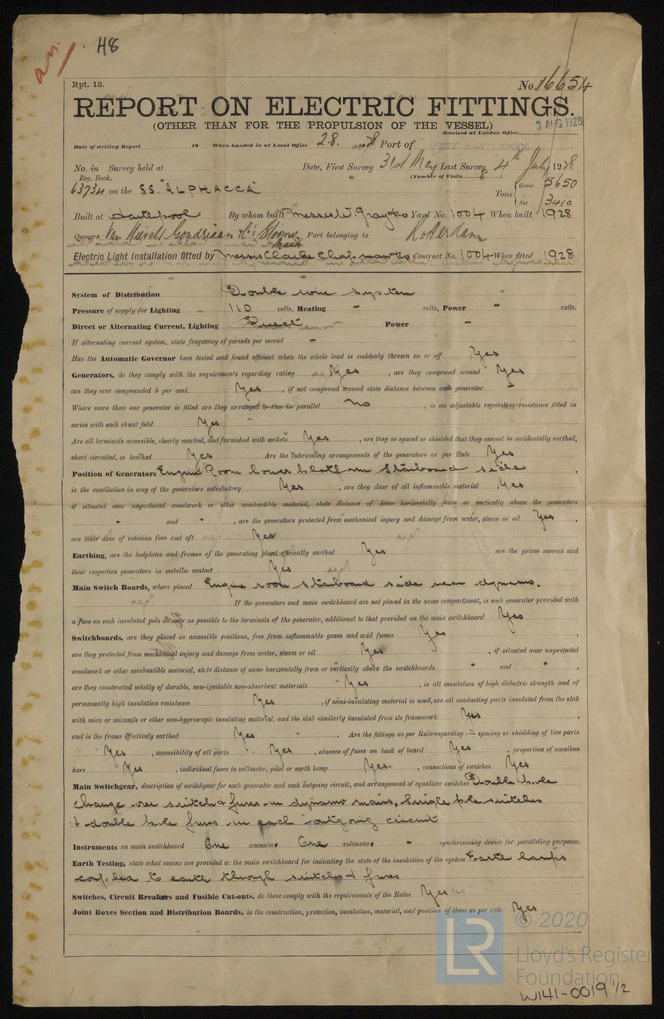 48
Rpt. 13.
No. 16654
REPORT ON ELECTRIC FITTINGS.
(OTHER THAN FOR THE PROPULSION OF THE VESSEL)
Received at London Office 3 AUG 1928
Date of writing Report 19 When handed in at Local Office 2.8. 1928 Port of
No. in Survey held at Date, First Survey 31st May Last Survey 4th July 1928
Reg. Book. (Number of Visits 8)
63734 on the SS. "ALPHACCA" Tons { Gross 5650
Net 3410
Built at Hartlepool By whom built Messrs W. Gray & Co Yard No. 1004 When built 1928
Owners Van Nievelt Goudriaan & Co's Stoomv. Maats Port belonging to Rotterdam
Electric Light Installation fitted by Messrs Clarke Chapman & Co Contract No. 1004 When fitted 1928
System of Distribution Double wire system
Pressure of supply for Lighting 110 volts, Heating " volts, Power " volts.
Direct or Alternating Current, Lighting Direct Power "
If alternating current system, state frequency of periods per second "
Has the Automatic Governor been tested and found efficient when the whole load is suddenly thrown on or off Yes
Generators, do they comply with the requirements regarding rating Yes , are they compound wound Yes
are they over compounded 5 per cent. Yes , if not compound wound state distance between each generator
Where more than one generator is fitted are they arranged to run in parallel No , is an adjustable regulating resistance fitted in
series with each shunt field Yes
Are all terminals accessible, clearly marked, and furnished with sockets Yes , are they so spaced or shielded that they cannot be accidentally earthed,
short circuited, or touched Yes Are the lubricating arrangements of the generators as per Rule Yes
Position of Generators Engine Room lower platform Starboard side ,
is the ventilation in way of the generators satisfactory Yes , are they clear of all inflammable material Yes
if situated near unprotected woodwork or other combustible material, state distance of same horizontally from or vertically above the generators
" and " , are the generators protected from mechanical injury and damage from water, steam or oil Yes ,
are their axes of rotation fore and aft Yes
Earthing, are the bedplates and frames of the generating plant efficiently earthed Yes are the prime movers and
their respective generators in metallic contact Yes
Main Switch Boards, where placed Engine room starboard side near dynamo.
If the generators and main switchboard are not placed in the same compartment, is each generator provided with
a fuse on each insulated pole as near as possible to the terminals of the generator, additional to that provided on the main switchboard Yes
Switchboards, are they placed in accessible positions, free from inflammable gases and acid fumes Yes ,
are they protected from mechanical injury and damage from water, steam or oil Yes , if situated near unprotected
woodwork or other combustible material, state distance of same horizontally from or vertically above the switchboards " and " ,
are they constructed wholly of durable, non-ignitable non-absorbent materials Yes , is all insulation of high dielectric strength and of
permanently high insulation resistance Yes , if semi-insulating material is used, are all conducting parts insulated from the slab
with mica or micanite or other non-hygroscopic insulating material, and the slab similarly insulated from its framework Yes ,
and is the frame effectively earthed Yes Are the fittings as per Rule regarding:— spacing or shielding of live parts
Yes , accessibility of all parts Yes , absence of fuses on back of board Yes , proportion of omnibus
bars Yes , individual fuses to voltmeter, pilot or earth lamp Yes , connections of switches Yes
Main Switchgear, description of switchgear for each generator and each outgoing circuit, and arrangement of equalizer switches Double pole
change over switch & fuses in dynamo mains, single pole switches
& double pole fuses in each outgoing circuit
Instruments on main switchboard One ammeter One voltmeter " synchronising device for paralleling purposes.
Earth Testing, state what means are provided at the main switchboard for indicating the state of the insulation of the system Earth lamps
coupled to earth through switches & fuses
Switches, Circuit Breakers and Fusible Cut-outs, do these comply with the requirements of the Rules Yes
Joint Boxes Section and Distribution Boards, is the construction, protection, insulation, material, and position of these as per rule Yes
© 2020
LR Lloyd's Register
Foundation
W141-0019 1/2